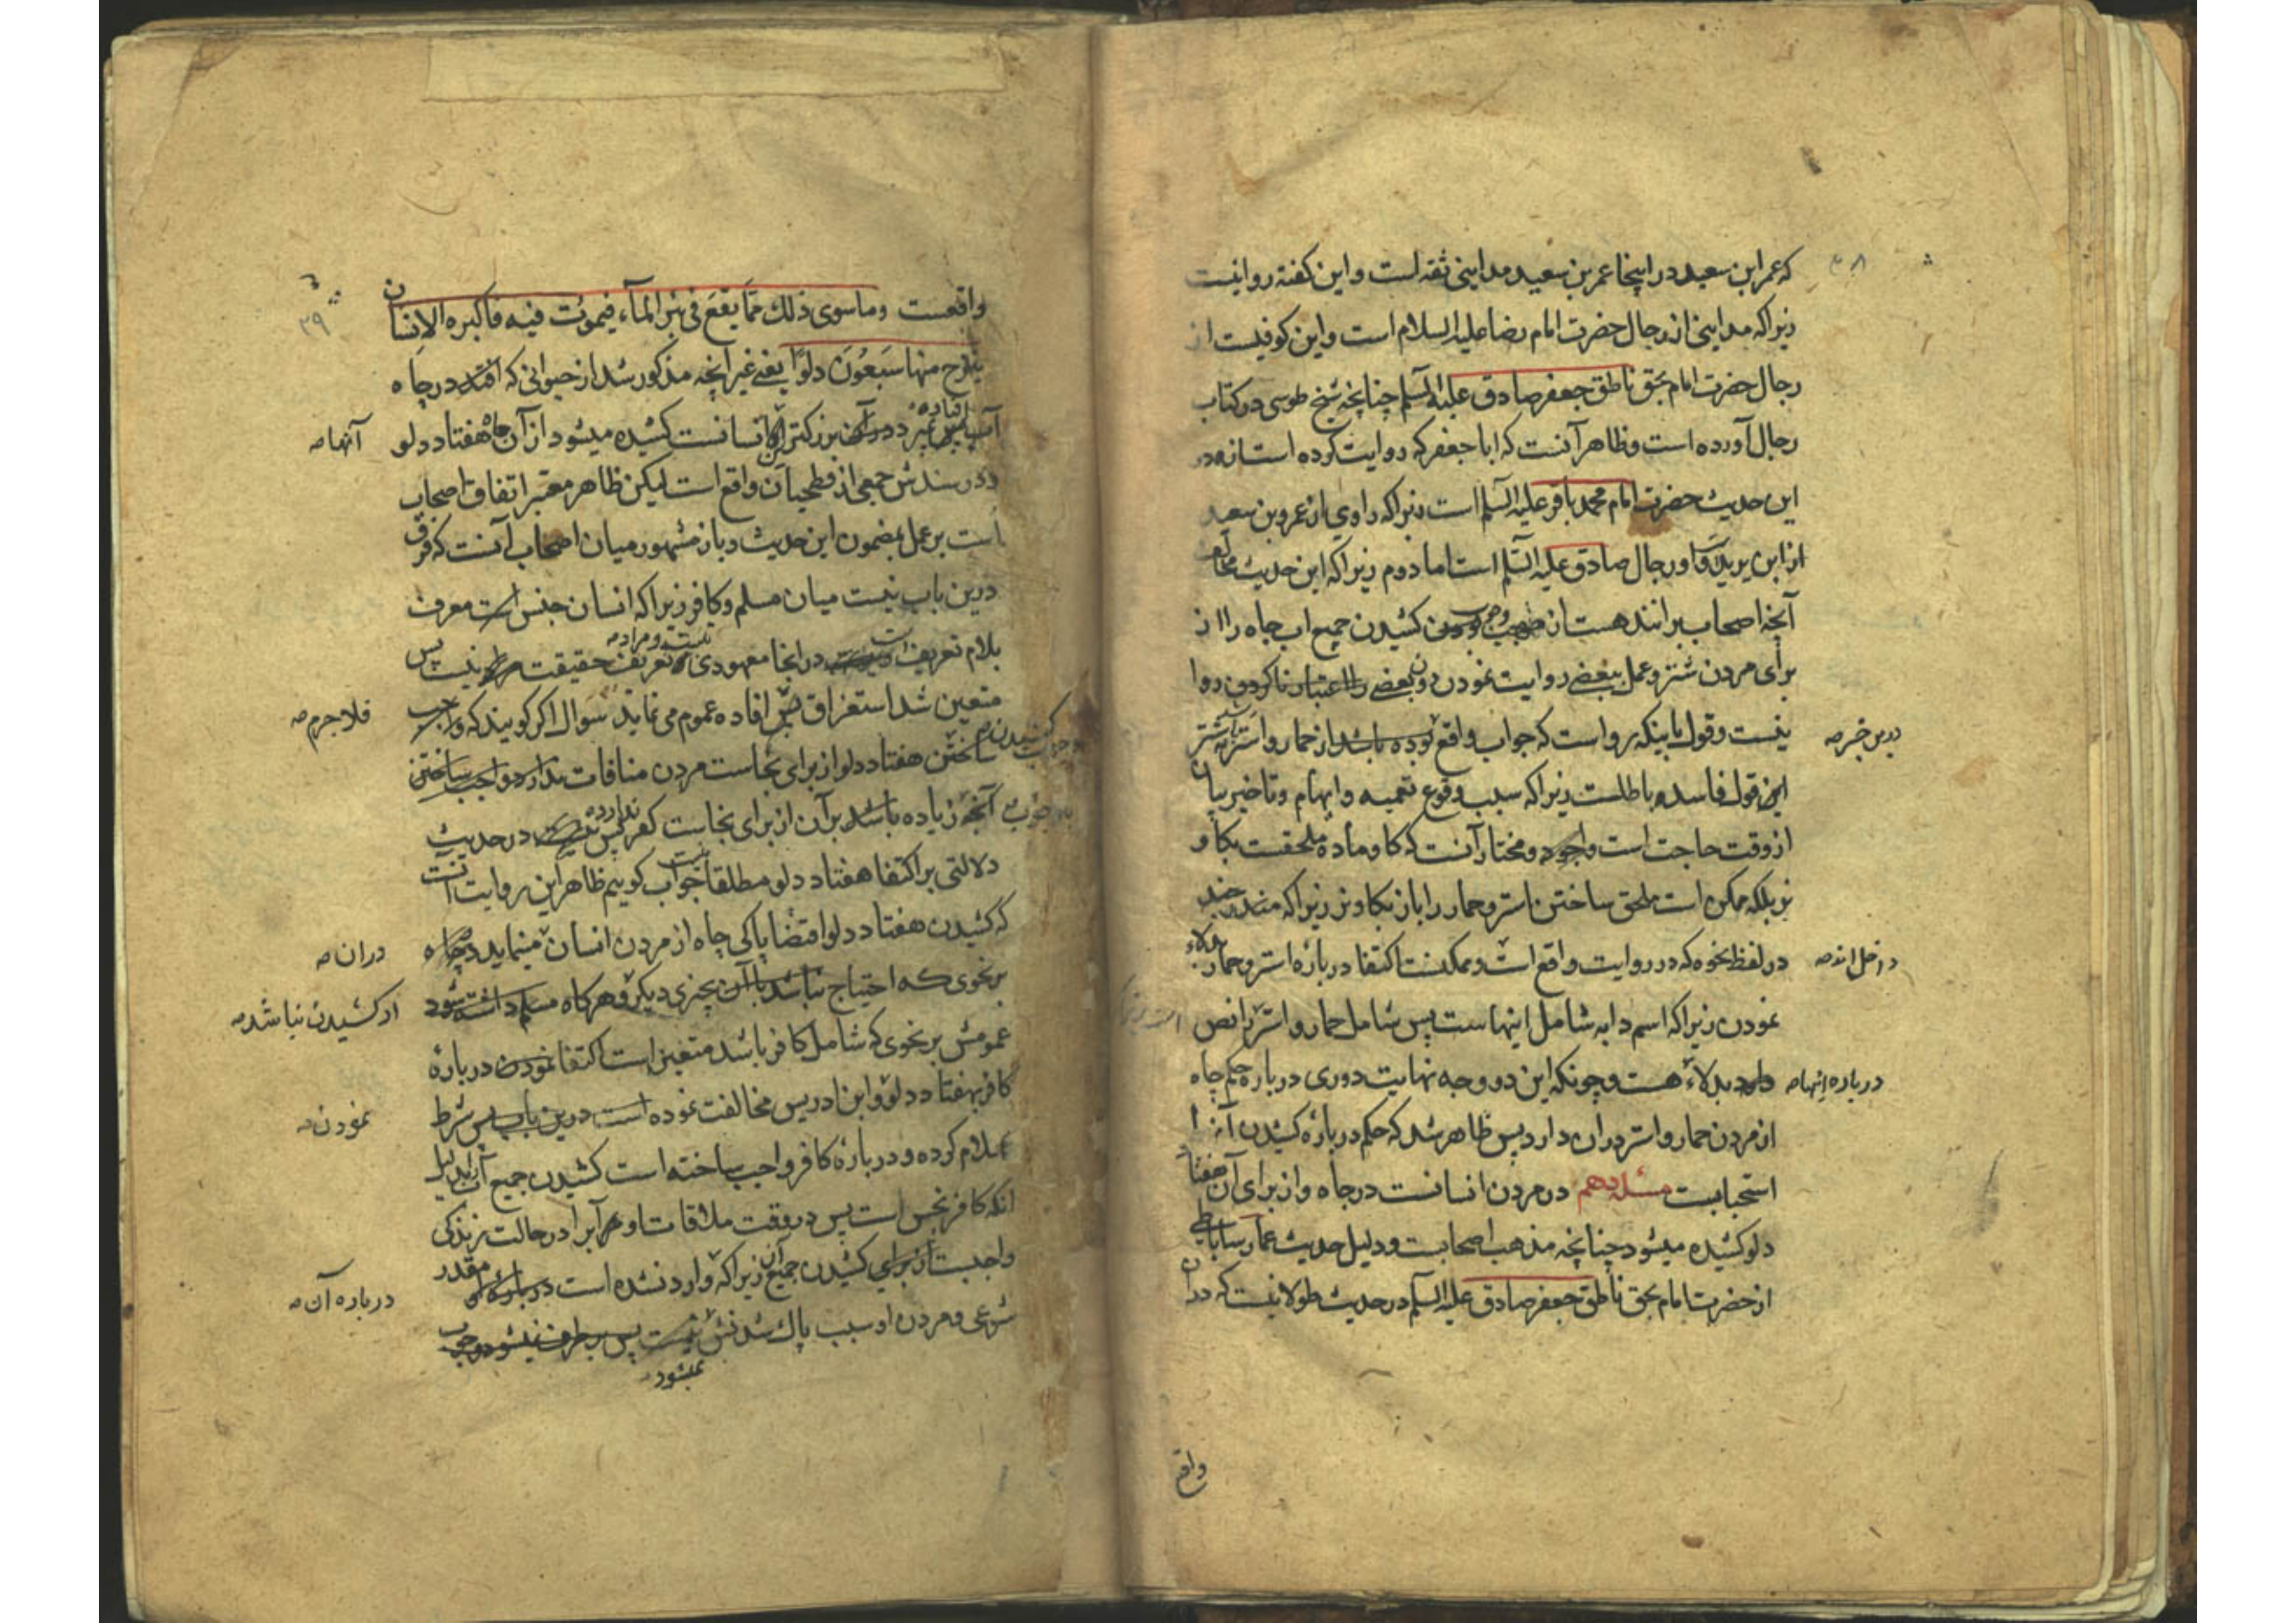 که عمر ابن سعید در اینجا عمر بن سعید مداینی ثقه است و این گفته روا نیست
زیرا که مداینی از رجال حضرت امام رضا علیه السلام است و این کوفیست از
رجال حضرت امام بحق ناطق جعفر صادق علیه السلم چنانچه شیخ طوسی در کتاب
رجال آورده است و ظاهر آنست که ابا جعفر که روایت کرده است از او در
این حدیث حضرت امام محمد باقر علیه السلم است زیرا که راوی از عمرو بن سعید
رجال صادق علیه السلم است اما دوم زیرا که این حدیث مخالف
آنچه اصحاب برانند هست از وجوب کشیدن جمیع اب چاه را از
برای مردن شتر و عمل ببعضی روایت نمودن دون بعضی روا
نیست و قول باینکه رواست که جواب واقع از حمار و استر
درین خبر
این قول فاسد و باطلست زیرا که سبب وقوع تعمیه و ابهام و تاخیر بیان
از وقت حاجت است و مختار آنست که کاو ماده ملحقست بکاو
نر بلکه ممکن است ملحق ساختن استر و حمار را باز بکاو نر زیرا که
در لفظ نحوه که در روایت واقع است و ممکنست اکتفا درباره استر و حمار بدلاء
داخل اند
نمودن زیرا که اسم دابه شامل اینهاست پس شامل حمار و استر
بدلاء هست و چونکه این دو وجه نهایت دوری درباره حکم چاه
درباره اینها
از مردن حمار و استر در ان دارد پس ظاهر شد که حکم درباره کشیدن
استحبابیست مسئله دهم در مردن انسانست در چاه و از برای آن هفتاد
دلو کشیده میشود چنانچه مذهب اصحابست و دلیل حدیث عمار ساباطی
از حضرت امام بحق ناطق جعفر صادق علیه السلم در حدیث طولانیست که در ان
واقع
۳۸
۳۹
واقعست وما سوی ذلك مما یقع فی بئر الماء فیموت فیه فاکبره الانسان
ینزح منها سبعون دلوا یعنی غیر انچه مذکور شد از حیوانی که افتد در چاه
آب بزرکتر انسانست کشیده میشود از آن چاه هفتاد دلو
آنها
و در سندش جمعی از فطحیان واقع است لیکن ظاهر معتبر اتفاق اصحاب
است بر عمل بمضمون این حدیث و باز مشهور میان اصحاب آنست که فرق
درین باب نیست میان مسلم و کافر زیرا که انسان جنس است معرف
بلام تعریف در اینجا معهودی نیست و مراد تعریف حقیقت نیست پس
متعین شد استغراق افاده عموم می نماید سؤال اکر کویند که
فلاجرم
ساختن هفتاد دلو از برای نجاست مردن منافات
آنچه زیاده باشد بر آن از برای نجاست کفر ندارد در حدیث
دلالتی بر اکتفا هفتاد دلو مطلقا نیست جواب کوییم ظاهر این روایت آنست
که کشیدن هفتاد دلو اقتضا پاکی چاه از مردن انسان مینماید
در ان
بر نحوی که احتیاج بچیزی دیکر و هر کاه مسلم داشته شود
از کشیدن نباشد
عمومش بر نحوی که شامل کافر باشد متعین است اکتفا نمودن درباره
کافر بهفتاد دلو و ابن ادریس مخالفت نموده است درین باب پس شرط
نمودن
اسلام کرده و درباره کافر واجب ساخته است کشیدن جمیع آب را بدلیل
انکه کافر نجس است پس در وقت ملاقات او آبرا در حالت زندکی
واجبست کشیدن جمیع آن زیرا که وارد نشده است مقدر
درباره آن
شرعی و مردن او سبب پاك شدنش
نمیشود